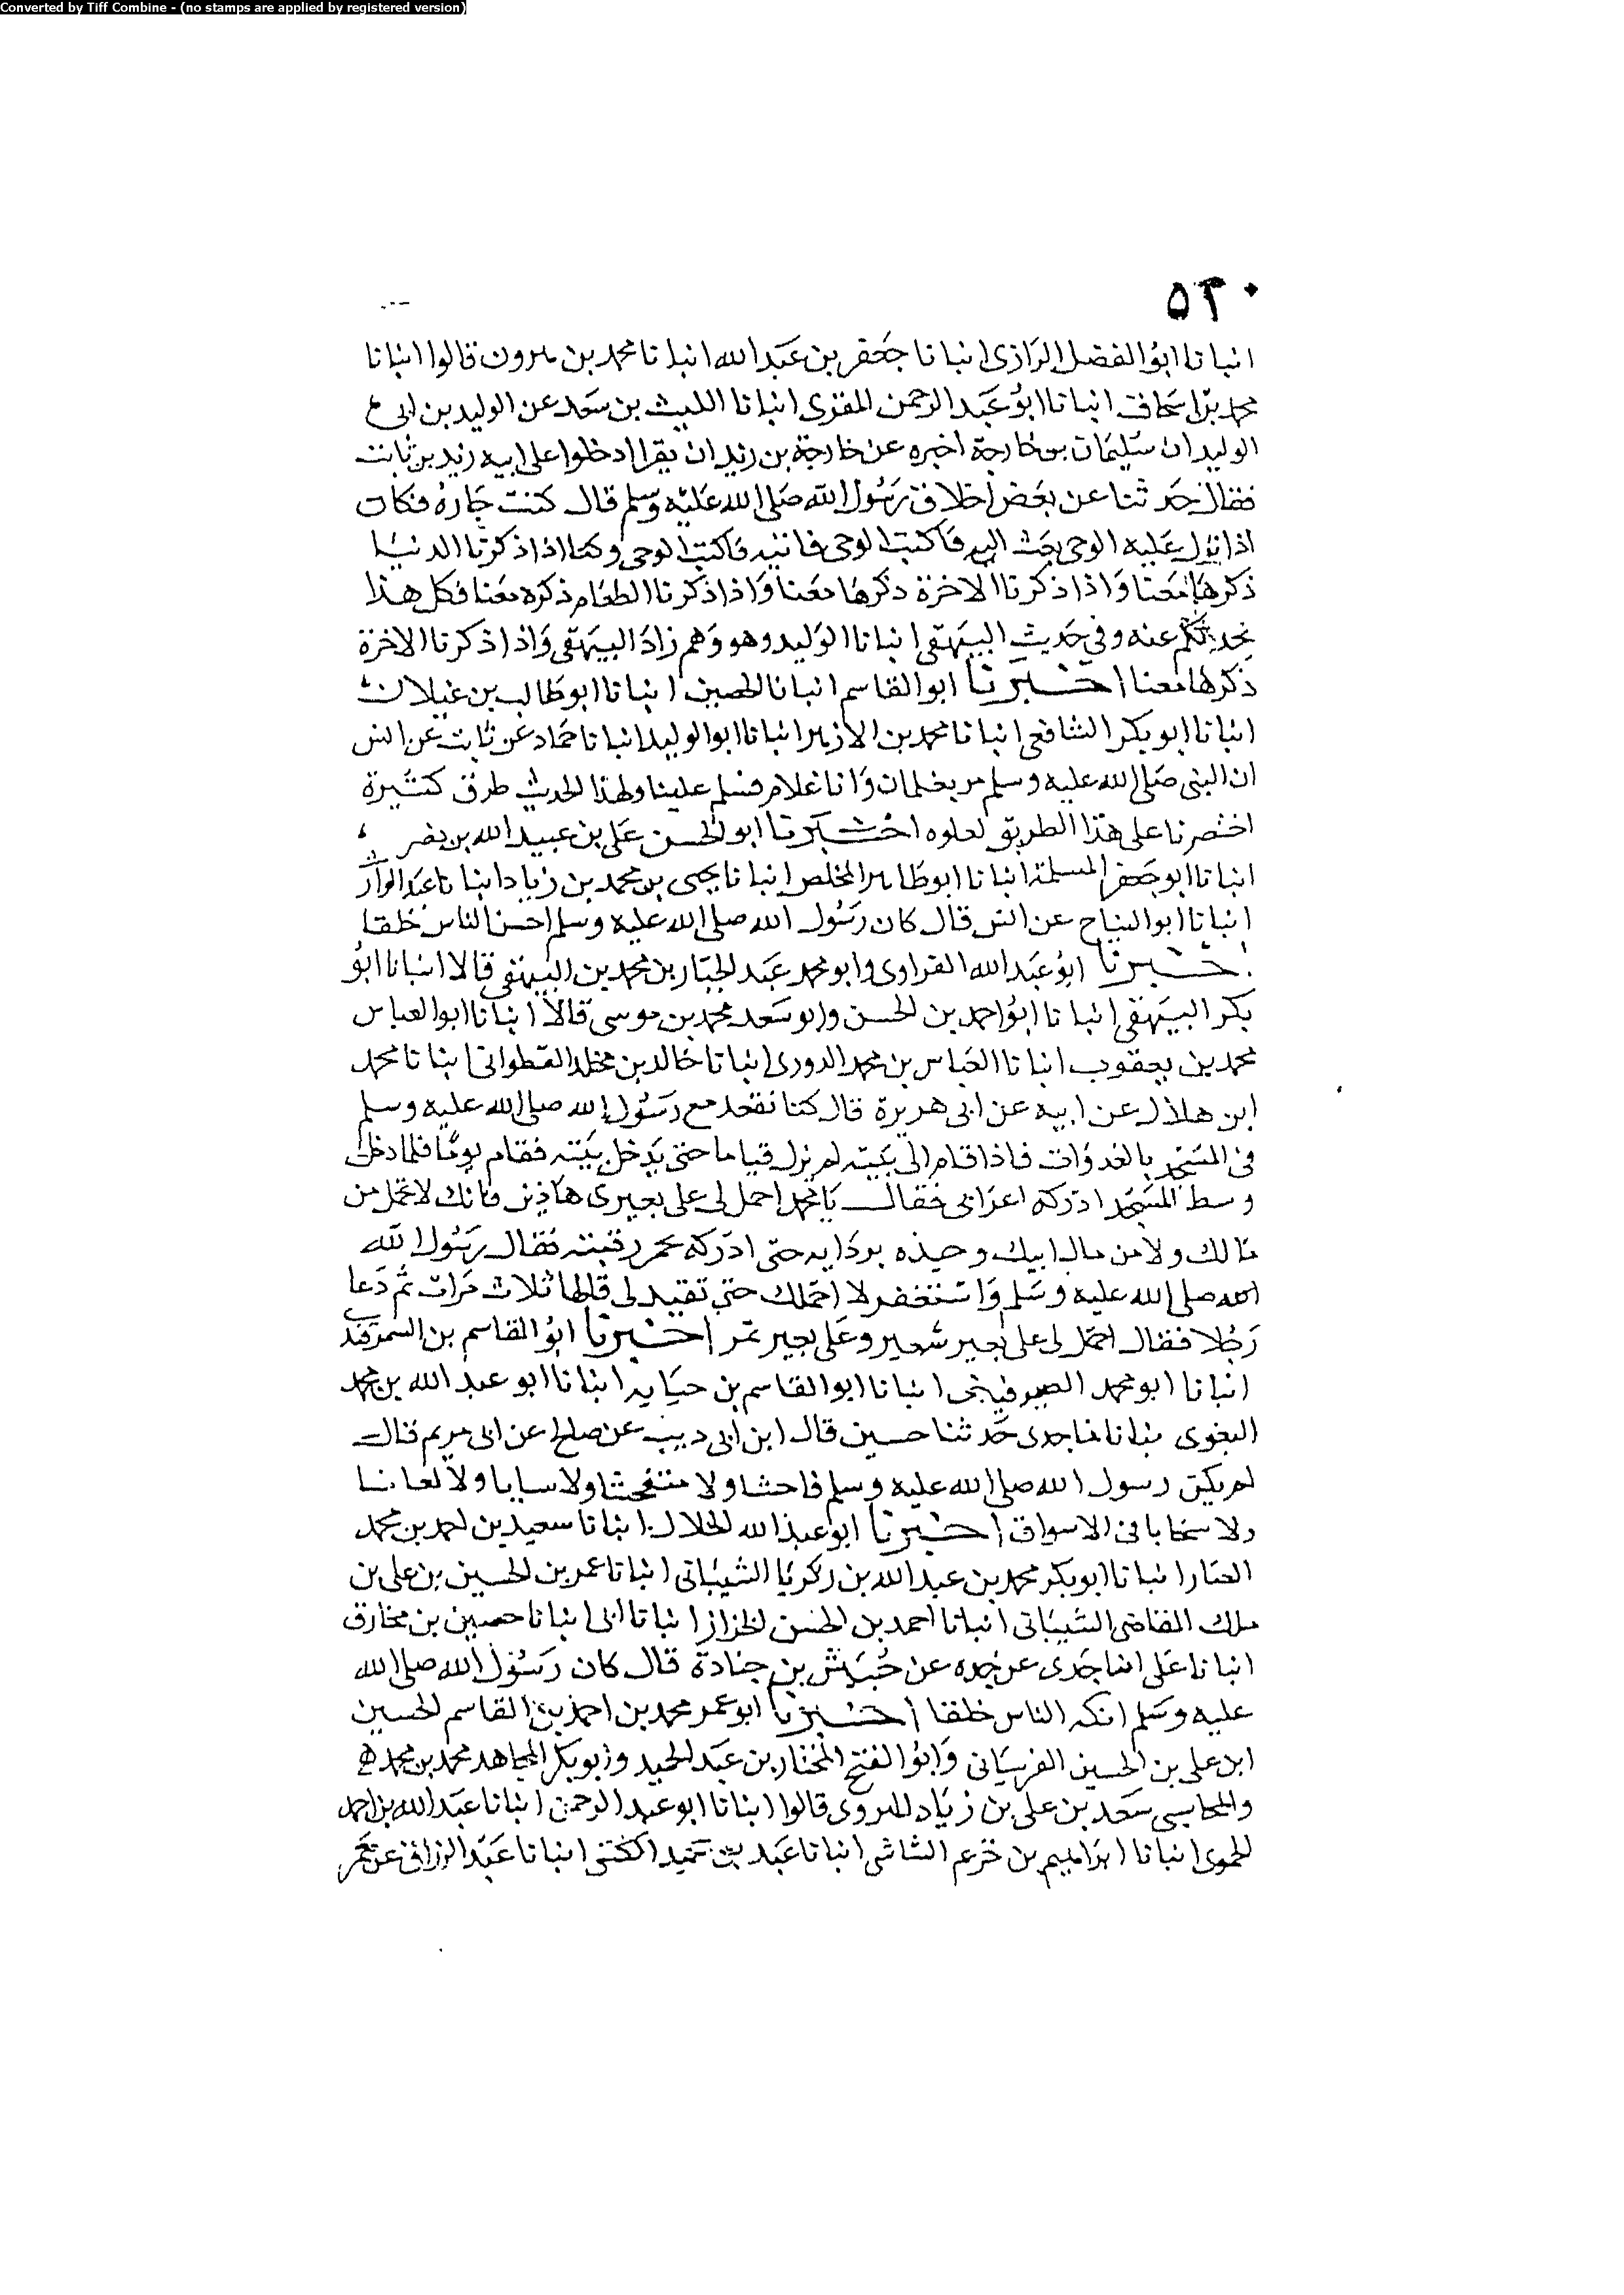 Converted by Tiff Combine - (no stamps are applied by registered version)
٥٣٠
انبانا ابو الفضل الرازى انبانا جعفر بن عبد الله انبانا محمد بن هرون قالوا انبانا
محمد بن اسحاق انبانا ابو عبد الرحمن المقرى انبانا الليث بن سعد عن الوليد بن ابى
الوليد ان سليمان بن خارجة اخبره عن خارجة بن زيد ان نفرا دخلوا على ابيه زيد بن ثابت
فقال حدثنا عن بعض اخلاق رسول الله صلى الله عليه وسلم قال كنت جاره فكان
اذا نزل عليه الوحى بعث الى فاكتب الوحى فاتيه فاكتب الوحى وكنا اذا ذكرنا الدنيا
ذكرها معنا واذا ذكرنا الاخرة ذكرها معنا واذا ذكرنا الطعام ذكره معنا فكل هذا
نحدثكم عنه وفى حديث البيهقى انبانا الوليد وهو وهم زاد البيهقى واذا ذكرنا الاخرة
ذكرها معنا اخبرنا ابو القاسم انبانا الحصين انبانا ابو طالب بن غيلان
انبانا ابو بكر الشافعى انبانا محمد بن الازهر انبانا ابو الوليد انبانا حماد عن ثابت عن انس
ان النبى صلى الله عليه وسلم مر بغلمان وانا غلام فسلم علينا ولهذا الحديث طرق كثيرة
اختصرنا على هذا الطريق لعلوه اخبرنا ابو الحسن على بن عبيد الله بن نصر
انبانا ابو جعفر المسلمة انبانا ابو طاهر المخلص انبانا يحيى بن محمد بن زياد انبانا عبد الوارث
انبانا ابو التياح عن انس قال كان رسول الله صلى الله عليه وسلم احسن الناس خلقا
اخبرنا ابو عبد الله الفراوى وابو محمد عبد الجبار بن محمد بن البيهقى قالا انبانا ابو
بكر البيهقى انبانا ابو احمد بن الحسن وابو سعد محمد بن موسى قالا انبانا ابو العباس
محمد بن يعقوب انبانا العباس بن محمد الدورى انبانا خالد بن مخلد القطوانى انبانا محمد
ابن هلال عن ابيه عن ابى هريرة قال كنا نقعد مع رسول الله صلى الله عليه وسلم
فى المسجد بالغدوات فاذا قام الى بيته لم نزل قياما حتى يدخل بيته فقام يوما فلما دخل
وسط المسجد ادركه اعرابى فقال يا محمد احمل لى على بعيرى هاذين فانك لا تحمل من
مالك ولا من مال ابيك وجبذه بردايه حتى ادركه رقبته فقال رسول الله
الله صلى الله عليه وسلم واستغفر لا احملك حتى تقيد لى قالها ثلاث مرات ثم دعا
رجلا فقال احمل لى على بعير شعير وعلى بعير تمر اخبرنا ابو القاسم بن السمرقندى
انبانا ابو محمد الصيرفينى انبانا ابو القاسم بن حبابه انبانا ابو عبد الله بن محمد
البغوى جدى حدثنا حسين قال ابن ابى ديب عن صالح عن ابى مريم قال
لم يكن رسول الله صلى الله عليه وسلم فاحشا ولا متفحشا ولا سبابا ولا لعانا
ولا سخابا فى الاسواق اخبرنا ابو عبد الله الخلال انبانا سعيد بن احمد بن محمد
العيار انبانا ابو بكر محمد بن عبد الله بن زكريا الشيبانى انبانا عمر بن الحسين بن على بن
ملك القاضى الشيبانى انبانا احمد بن الحسن الخزاز انبانا ابى انبانا حصين بن مخارق
انبانا على جدى عن جده عن حبيش بن جنادة قال كان رسول الله صلى الله
عليه وسلم افكه الناس خلقا اخبرنا ابو عمر محمد بن احمد بن القاسم الحسين
ابن على بن الحسين وابو الفتح المختار بن عبد الحميد وابو بكر المجاهد محمد بن محمد
والمحاسبى سعد بن على بن زياد الهروى قالوا انبانا ابو عبد الرحمن انبانا عبد الله بن احمد
الحموى انبانا ابراهيم بن خزيم الشاشى انبانا عبد بن حميد الكشى انبانا عبد الرزاق عن معمر